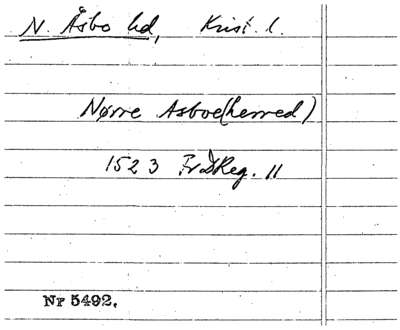 N. Åsbo hd, Krist. l.
Nørre Asboe (herred)
1523 FrDReg. 11
Nr 5492.